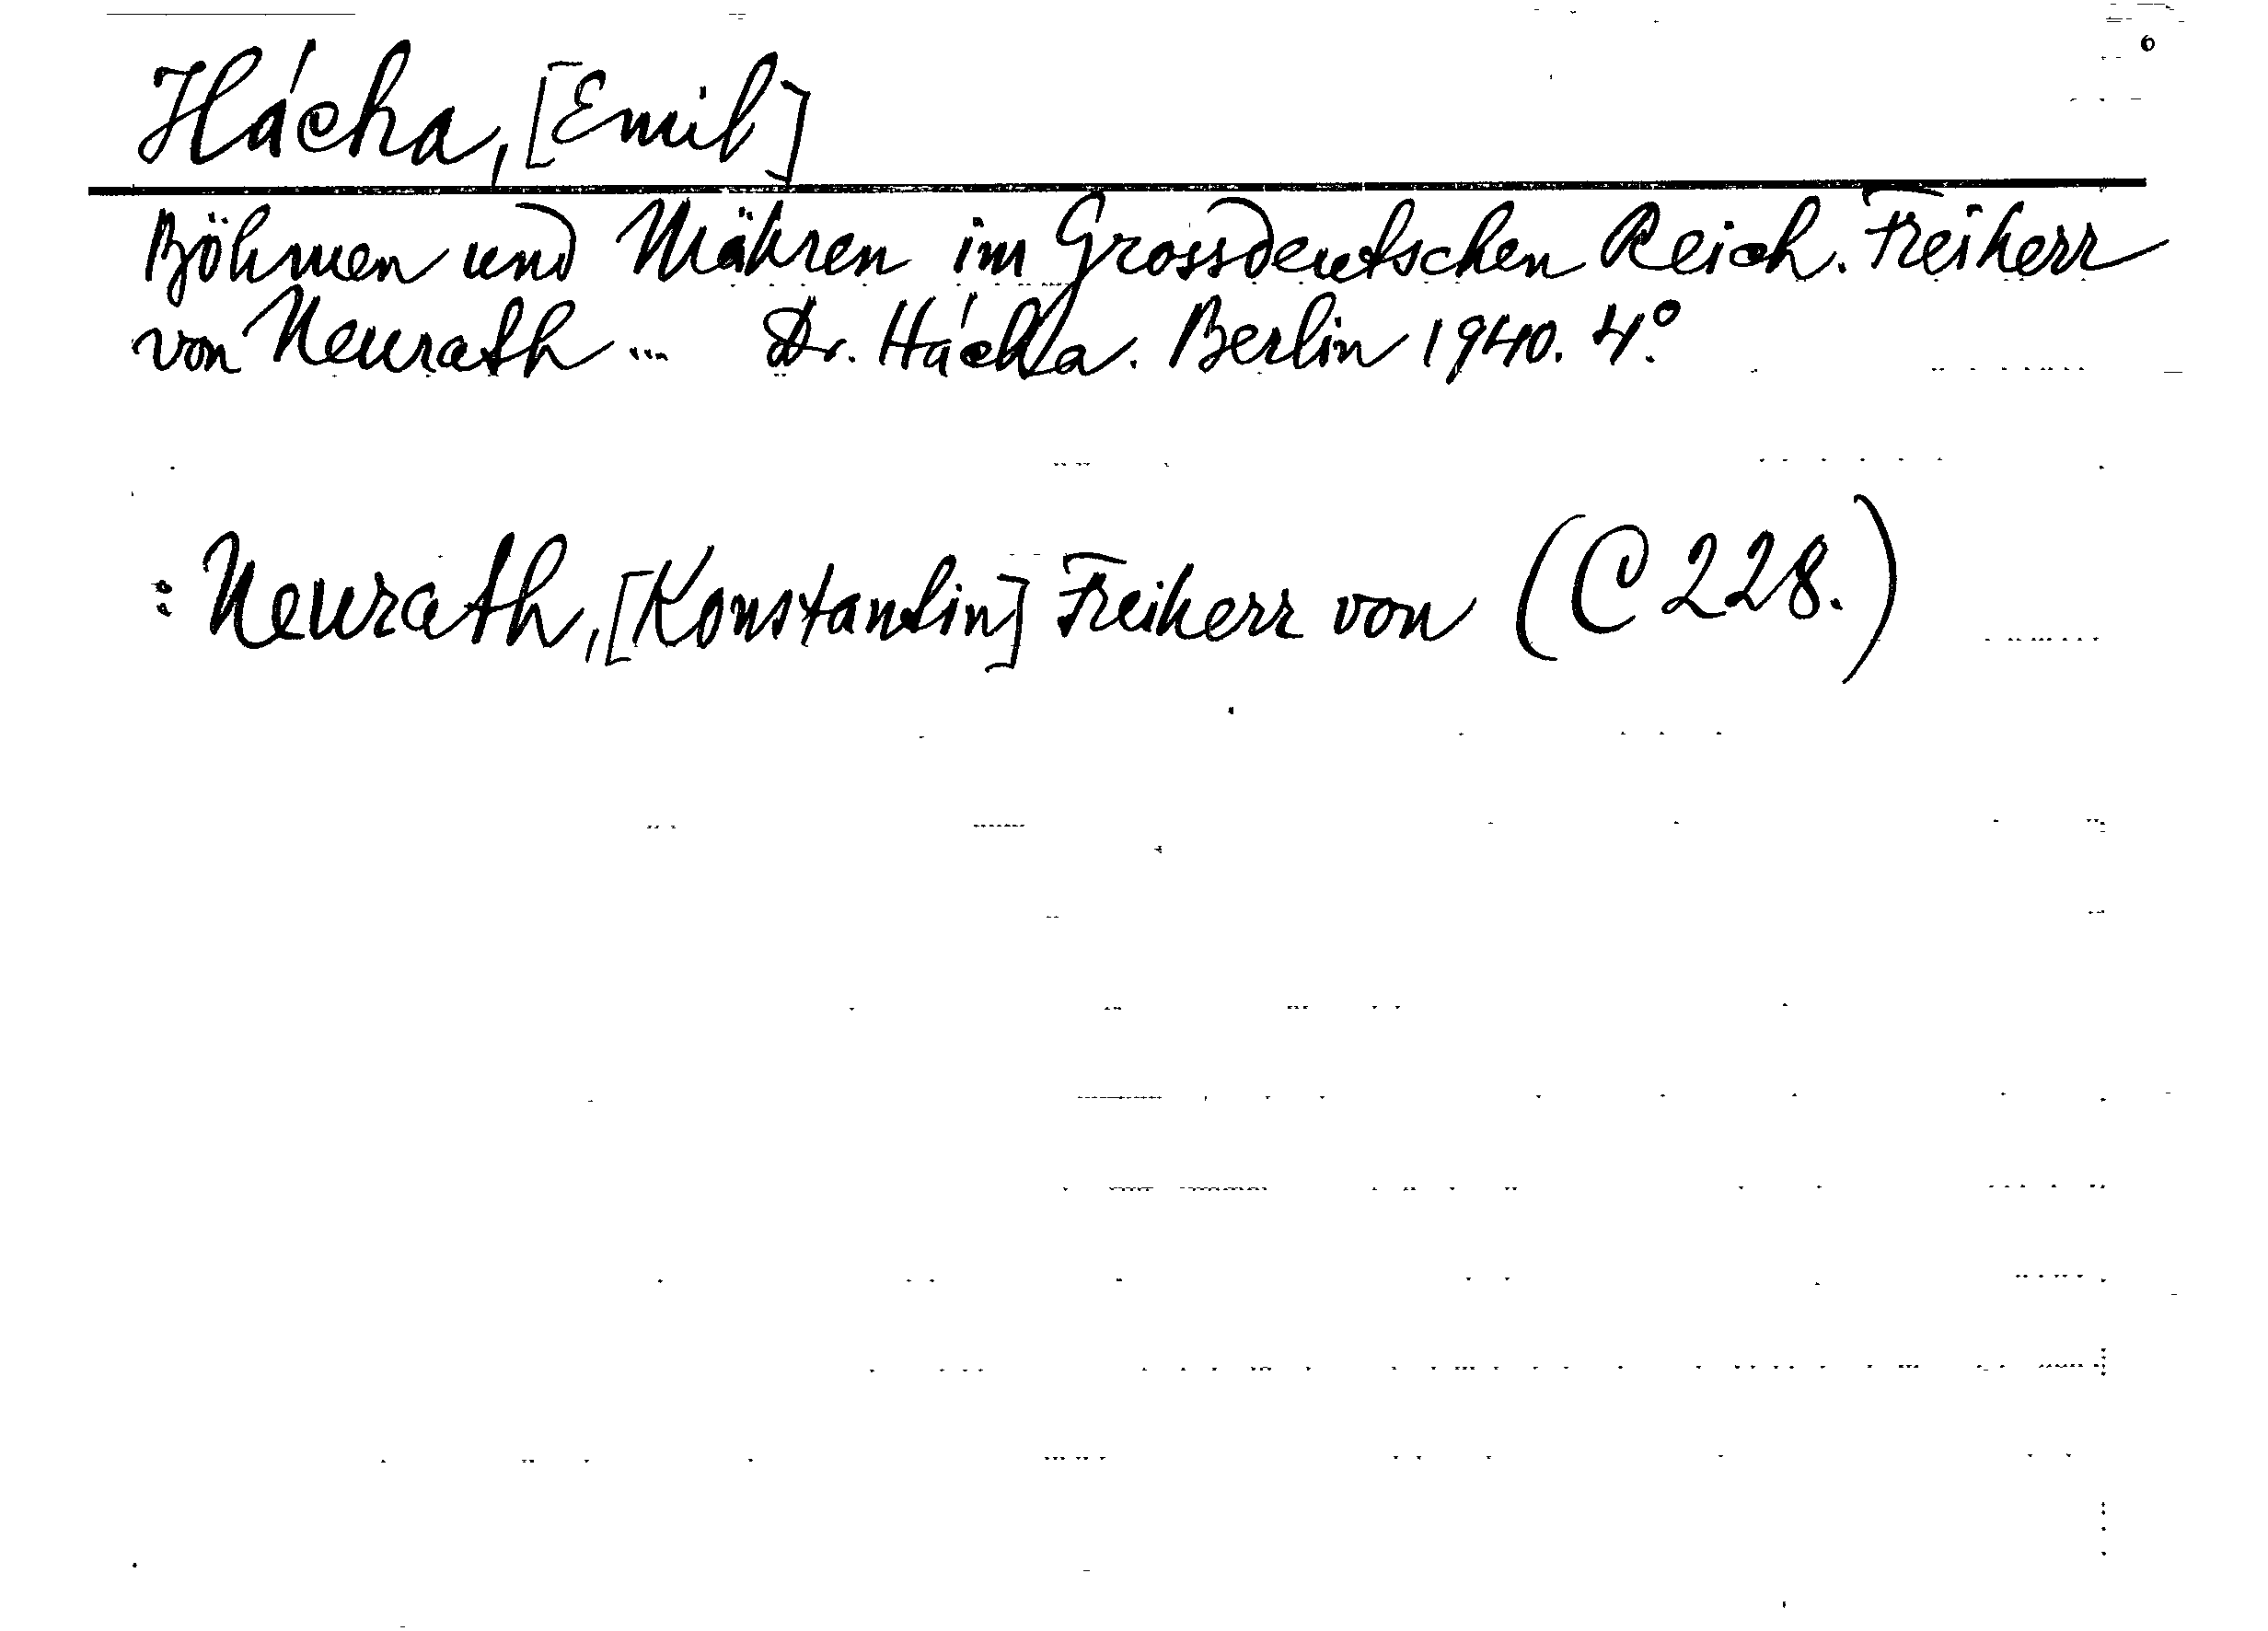 Hácha, [Emil]
Böhmen und Mähren im Grossdeutschen Reich. Freiherr
von Neurath ... Dr. Hácha. Berlin 1940. 4.°
: Neurath, [Konstantin] Freiherr von (C 228.)